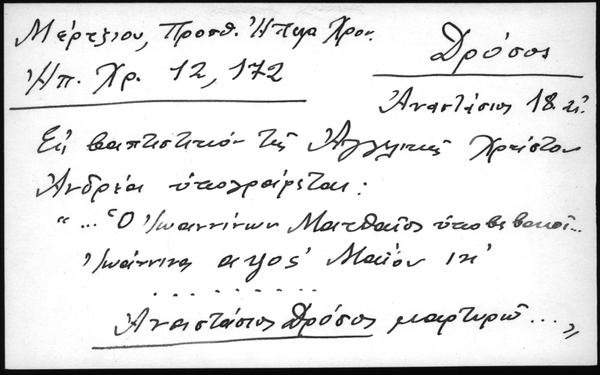 Μέρτζιου, Προσθ. Ἠπειρ. Χρον.
Δρόσος
Ἠπ. Χρ. 12, 172
Ἀναστάσιος 18. αἰ.
Εἰς βαπτιστικὸν τῆς Ἀγγλικῆς Χρήστου
Ἀνδρέα ὑπογράφεται:
"... Ὁ Ἰωαννίνων Ματθαῖος ὑποβεβαιοῖ...
Ἰωάννινα αψος' Μαΐου ιη'
. . . . . . . . . .
Ἀναστάσιος Δρόσος μαρτυρῶ ..."